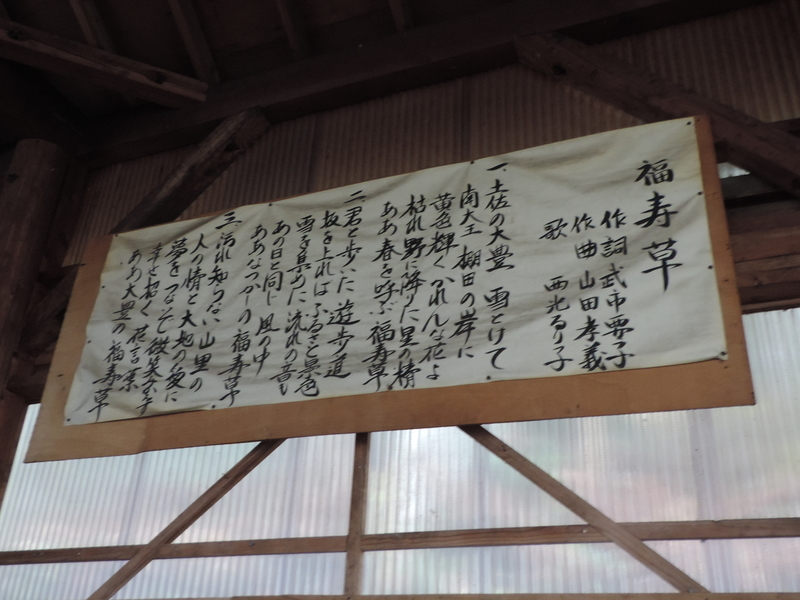 福寿草
作詞 武市栗子
作曲 山田孝義
歌 西光るり子
一 土佐の大豊 雪とけて
南大王 棚田の岸に
黄色輝く かれんな花よ
枯れ野に降りた 星の精
ああ春を呼ぶ 福寿草
二 君と歩いた 遊歩道
坂を上れば ふるさと景色
雪を集めた 流れの音も
あの日と同じ 風の中
ああなつかしの 福寿草
三 汚れ知らない 山里の
人の情と 大地の愛に
夢をつなぎて 微笑みを
幸せ招く 花言葉
ああ大豊の 福寿草